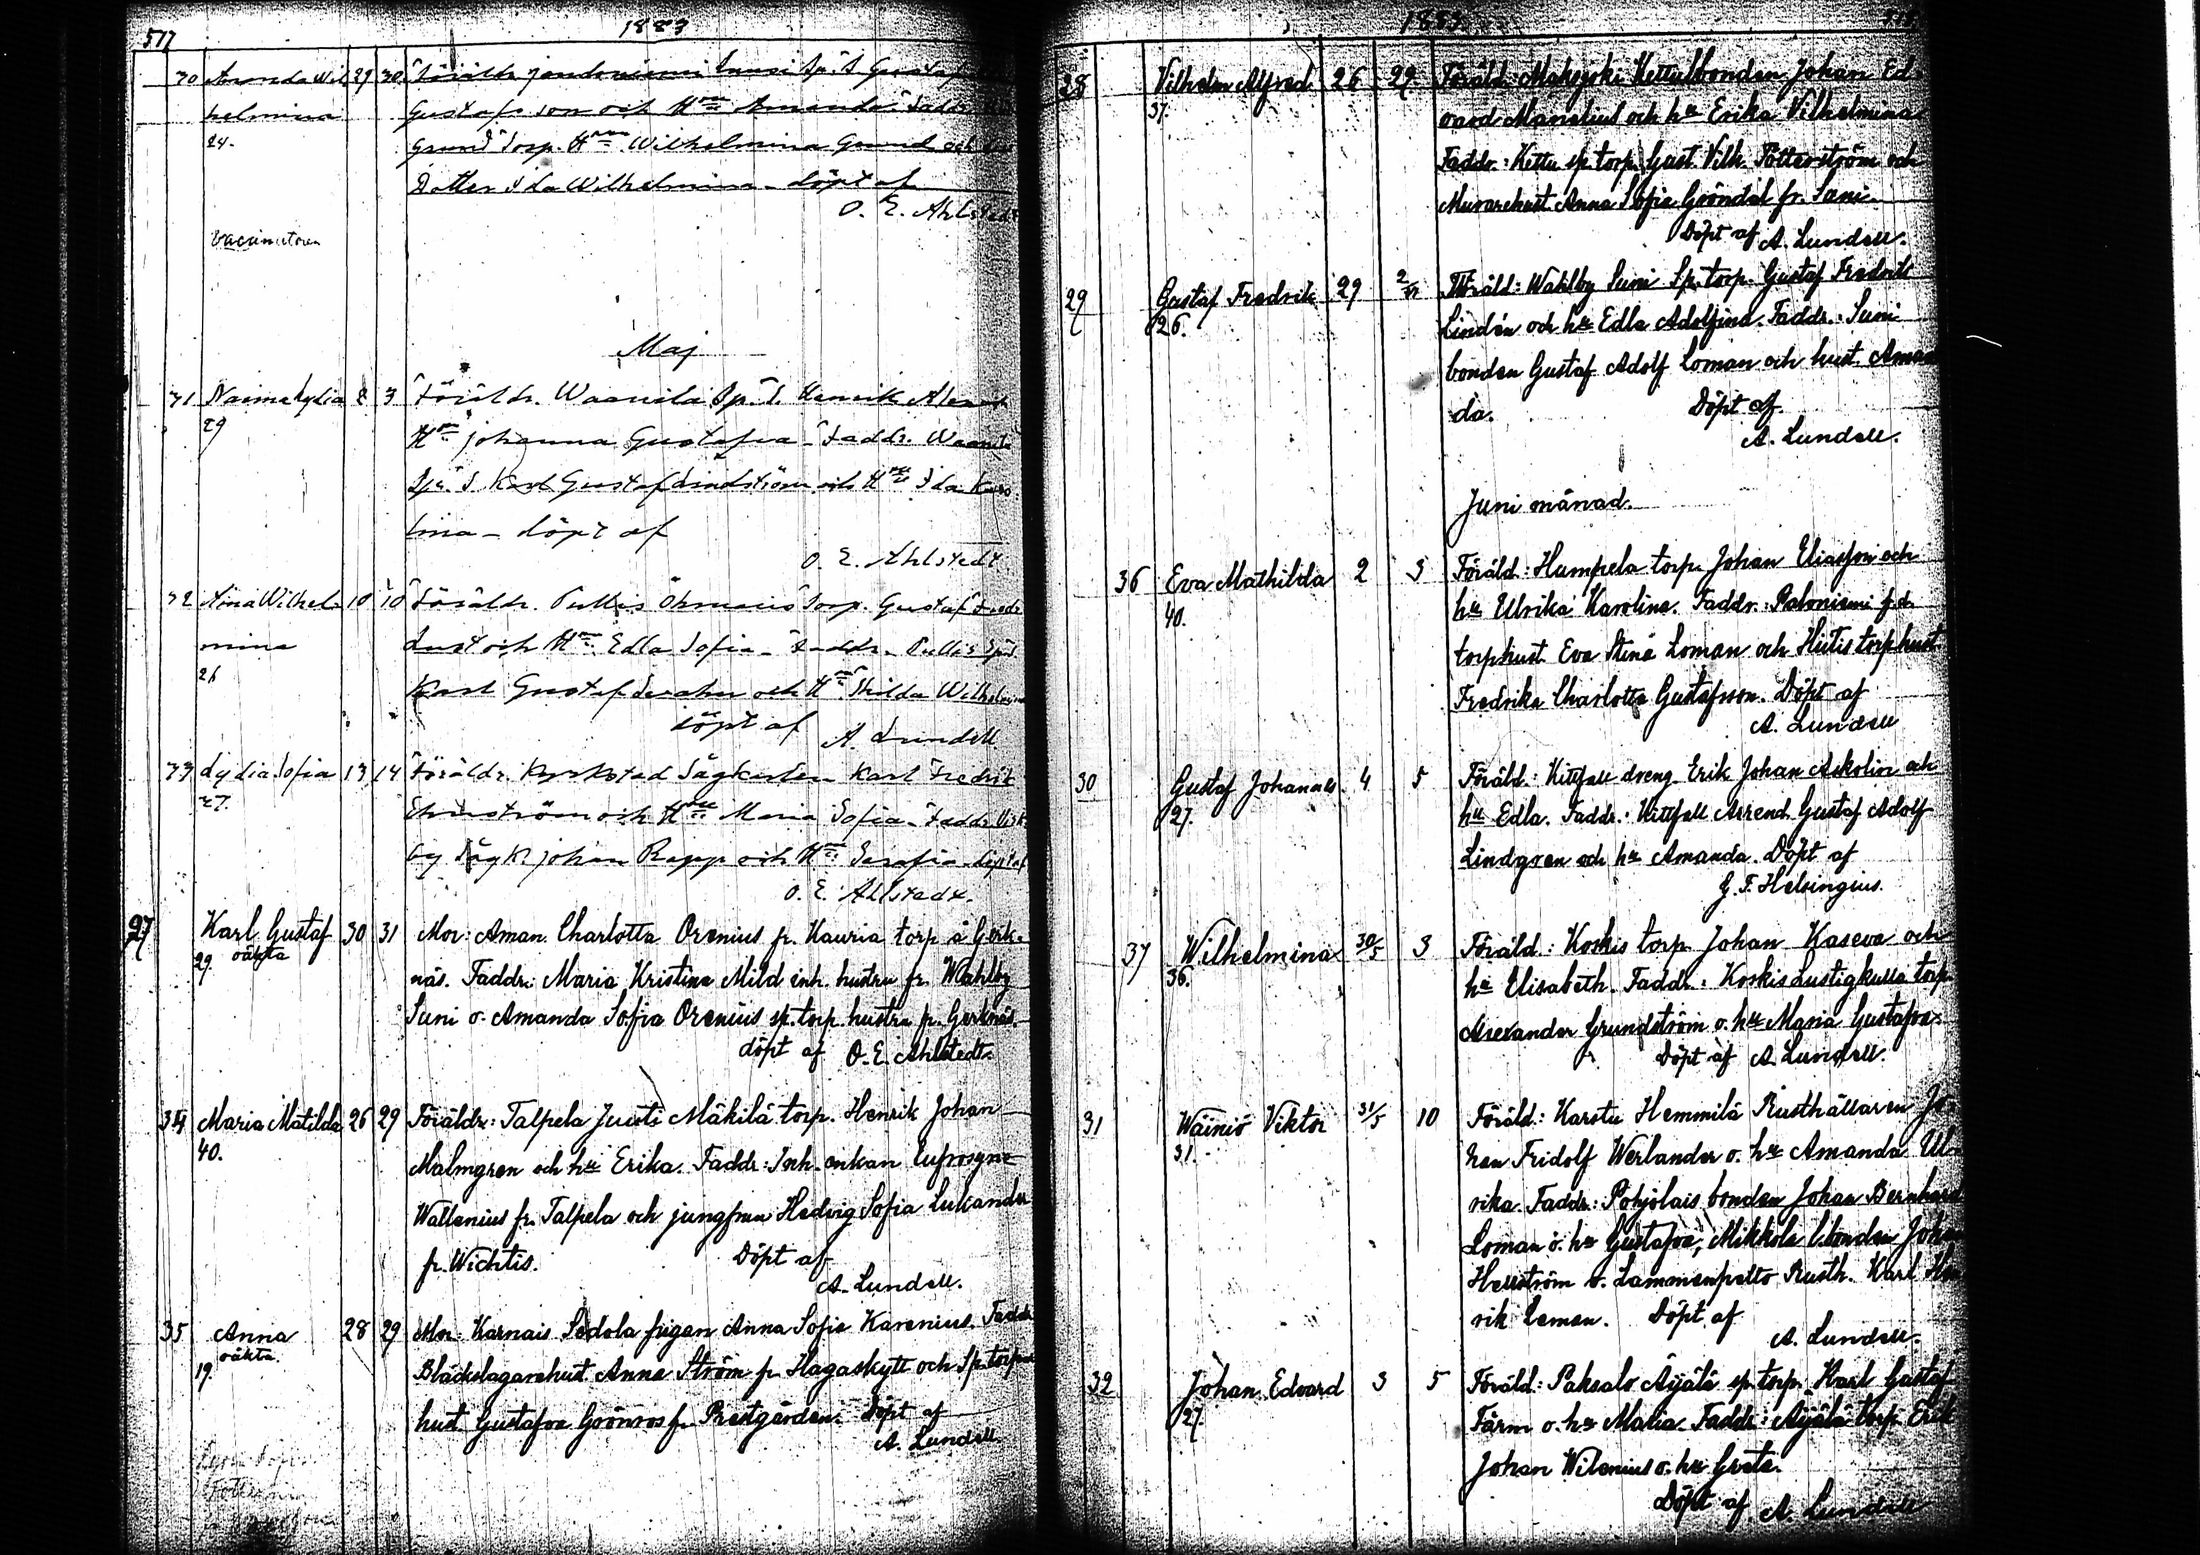 517
1883
30 Amanda Wil 29 30 Föräldr. Sp. T. Gustaf
helmina Gustafsson och Hru Amanda Faddr.
24. Grund Torp. Hru Wilhelmina Grund och
Dotter Ida Wilhelmina döpt af
O. E. Ahlstedt
Vaccinatören
Maj
31 Naima Lydia 2 3 Föräldr. Waanila Sp. T. Henrik
29 Hru Johanna Gustafva Faddr.
Sp. T. Karl Gustaf Lindström och Hru Ida Karo
lina döpt af
O. E. Ahlstedt
32 Aina Wilhel 10 10 Föräldr. Torp. Gustaf
mina Lust och Hru Edla Sofia Faddr.
26 Karl Gustaf och Hru Hilda
döpt af A. Lundell
33 Lydia Sofia 13 14 Föräldr. Kyrkstad Sågkarlen Karl Fredrik
27. och Hru Maria Sofia Faddr.
by Sågk Johan Rapp och Hru Serafia döpt af
O. E. Ahlstedt.
27 Karl Gustaf 30 31 Mor: Aman. Charlotta Orenius fr. Kauria torp å Gerk-
29. oäkta näs. Faddr: Maria Kristina Mild inh. hustru fr. Wahlby
Suni o. Amanda Sofia Orenius sp. torp. hustru fr. Gerknäs.
döpt af O. E. Ahlstedt.
34 Maria Matilda 26 29 Föräldr: Talpela Jussi Mäkilä torp. Henrik Johan
40. Malmgren och hru Erika. Faddr: Inh. enkan Eufrosyne
Wallenius fr. Talpela och jungfrun Hedvig Sofia
fr. Wichtis. Döpt af
A. Lundell.
35 Anna 28 29 Mor: Karnais Sedola pigan Anna Sofia Karenius. Faddr
oäkta. Bläckslagarehust. Anna Ström fr. Hagaskytt och Sp. torpare
19. hust Gustafva Grönros fr. Prestgården. Döpt af
A. Lundell
1883
28 Vilhelm Alfred 26 29. Föräld: Maksjoki Kettulbonden Johan Ed-
37. vard Manelius och hru Erika Vilhelmina
Faddr.: Kettu sp. torp. Gust. Vilh. och
Murarehust. Anna Sofia Gröndal fr. Suni.
Döpt af A. Lundell.
29 Gustaf Fredrik 29 Föräld: Wahlby Suni Sp. torp. Gustaf Fredrik
26. Lindén och hru Edla Adolfina. Faddr.: Suni
bonden Gustaf Adolf Loman och hust. Aman
da. Döpt af
A. Lundell.
Juni månad.
36 Eva Mathilda 2 3 Föräld: Humpela torp. Johan Eliasson och
40. hru Ulrika Karolina. Faddr.: Paloniemi f.d.
torphust Eva Stina Loman och Hiitis torphust
Fredrika Charlotta Gustafsson. Döpt af
A. Lundell
30 Gustaf Johannes 4 5 Föräld: Kittfall dreng Erik Johan Askolin och
27. hru Edla. Faddr.: Kittfall Arrend. Gustaf Adolf
Lindgren och hru Amanda. Döpt af
G. F. Helsingius.
37 Wilhelmina 30/5 3 Föräld: Koskis torp. Johan Kaseva och
36. hru Elisabeth. Faddr.: Koskis Lustigkulla torp.
Alexander Grundström o. hru Maria Gustafva.
Döpt af A. Lundell.
31 Wäinö Viktor 31/5 10 Föräld: Karstu Hemmilä Rusthållaren Jo
31. han Fridolf Werlander o. hru Amanda Ul-
rika. Faddr.: Pohjolais bonden Johan Bernhard
Loman o. hru Gustafva, Mikkola bonden Johan
Hellström o. Lammenpelto Rusth. Karl Hen
rik Leman. Döpt af
A. Lundell.
32 Johan Edvard 3 5 Föräld: Paksalo Äijälä sp. torp. Karl Gustaf
27. Färm o. hru Maria. Faddr: Äijälä torp. Erik
Johan Wilenius o. hru Greta.
Döpt af A. Lundell